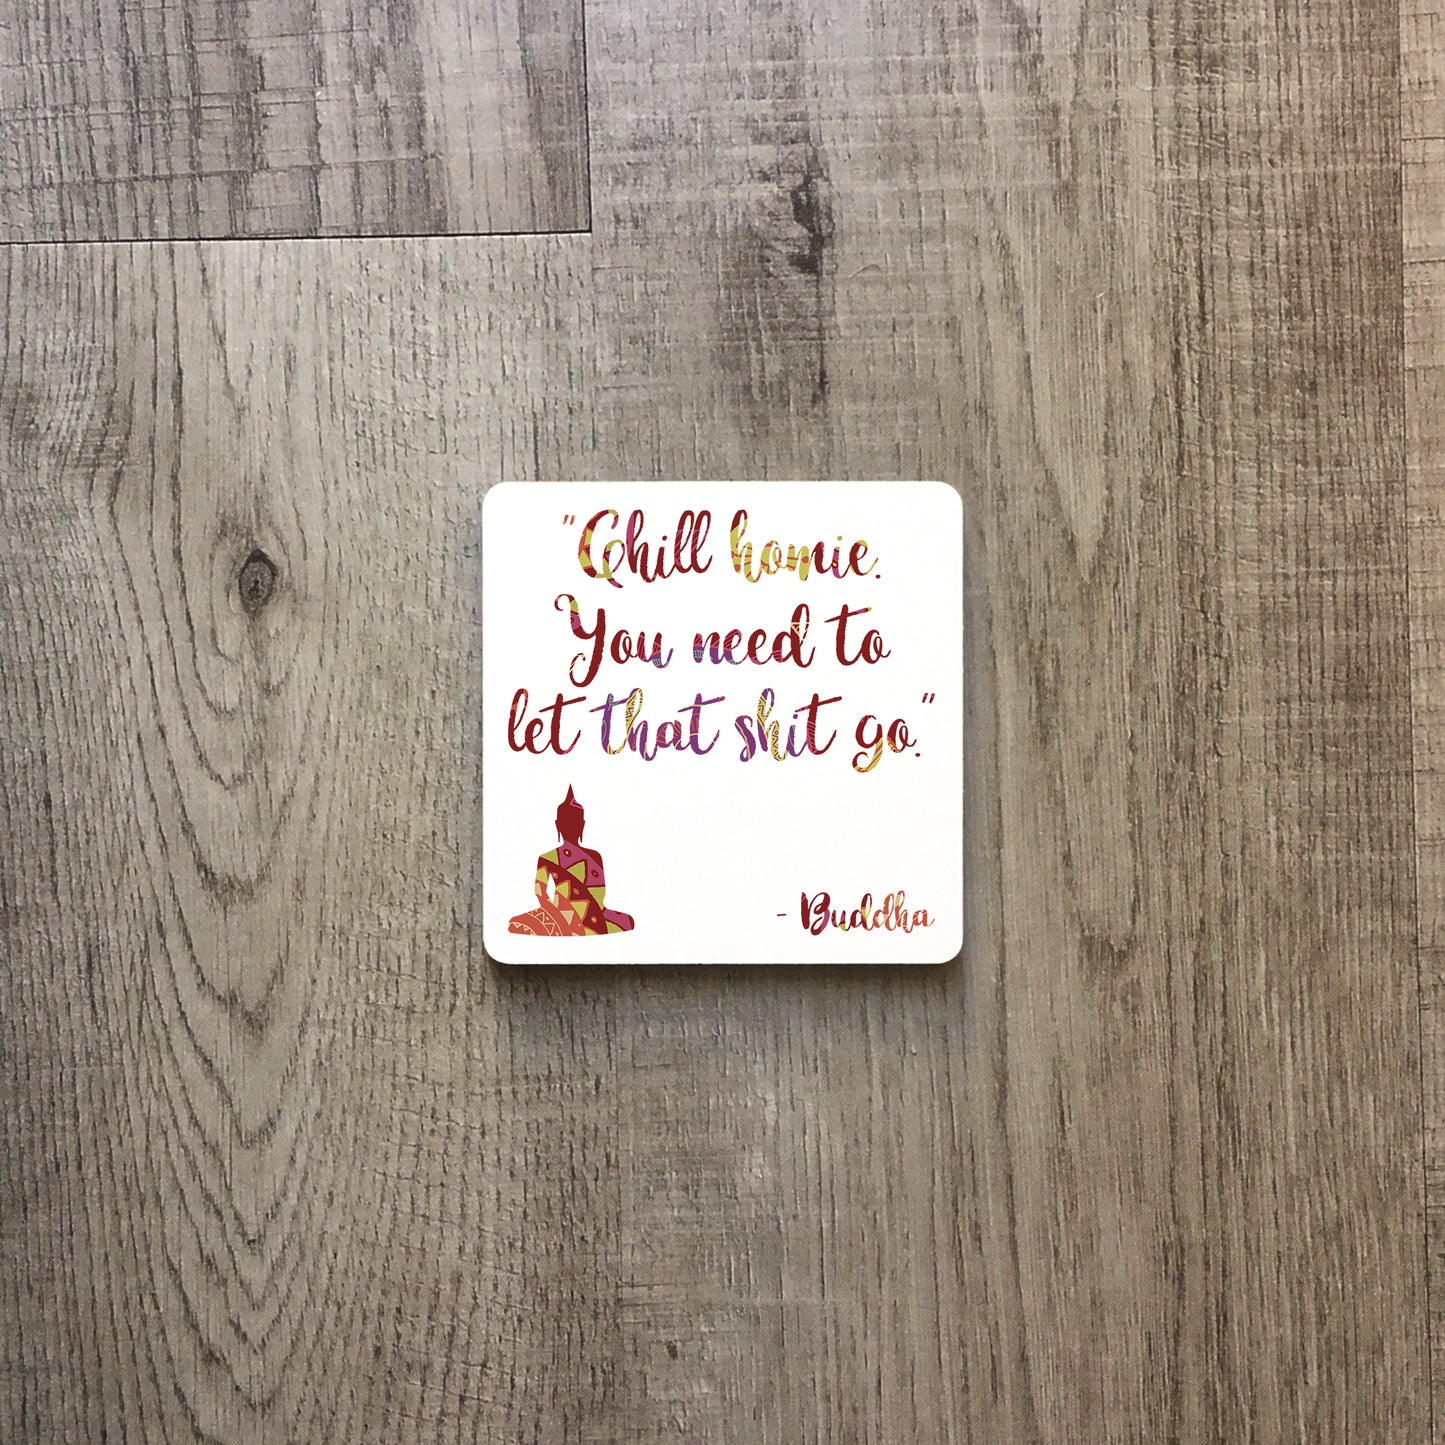 "Chill homie.
You need to
let that shit go."
- Buddha